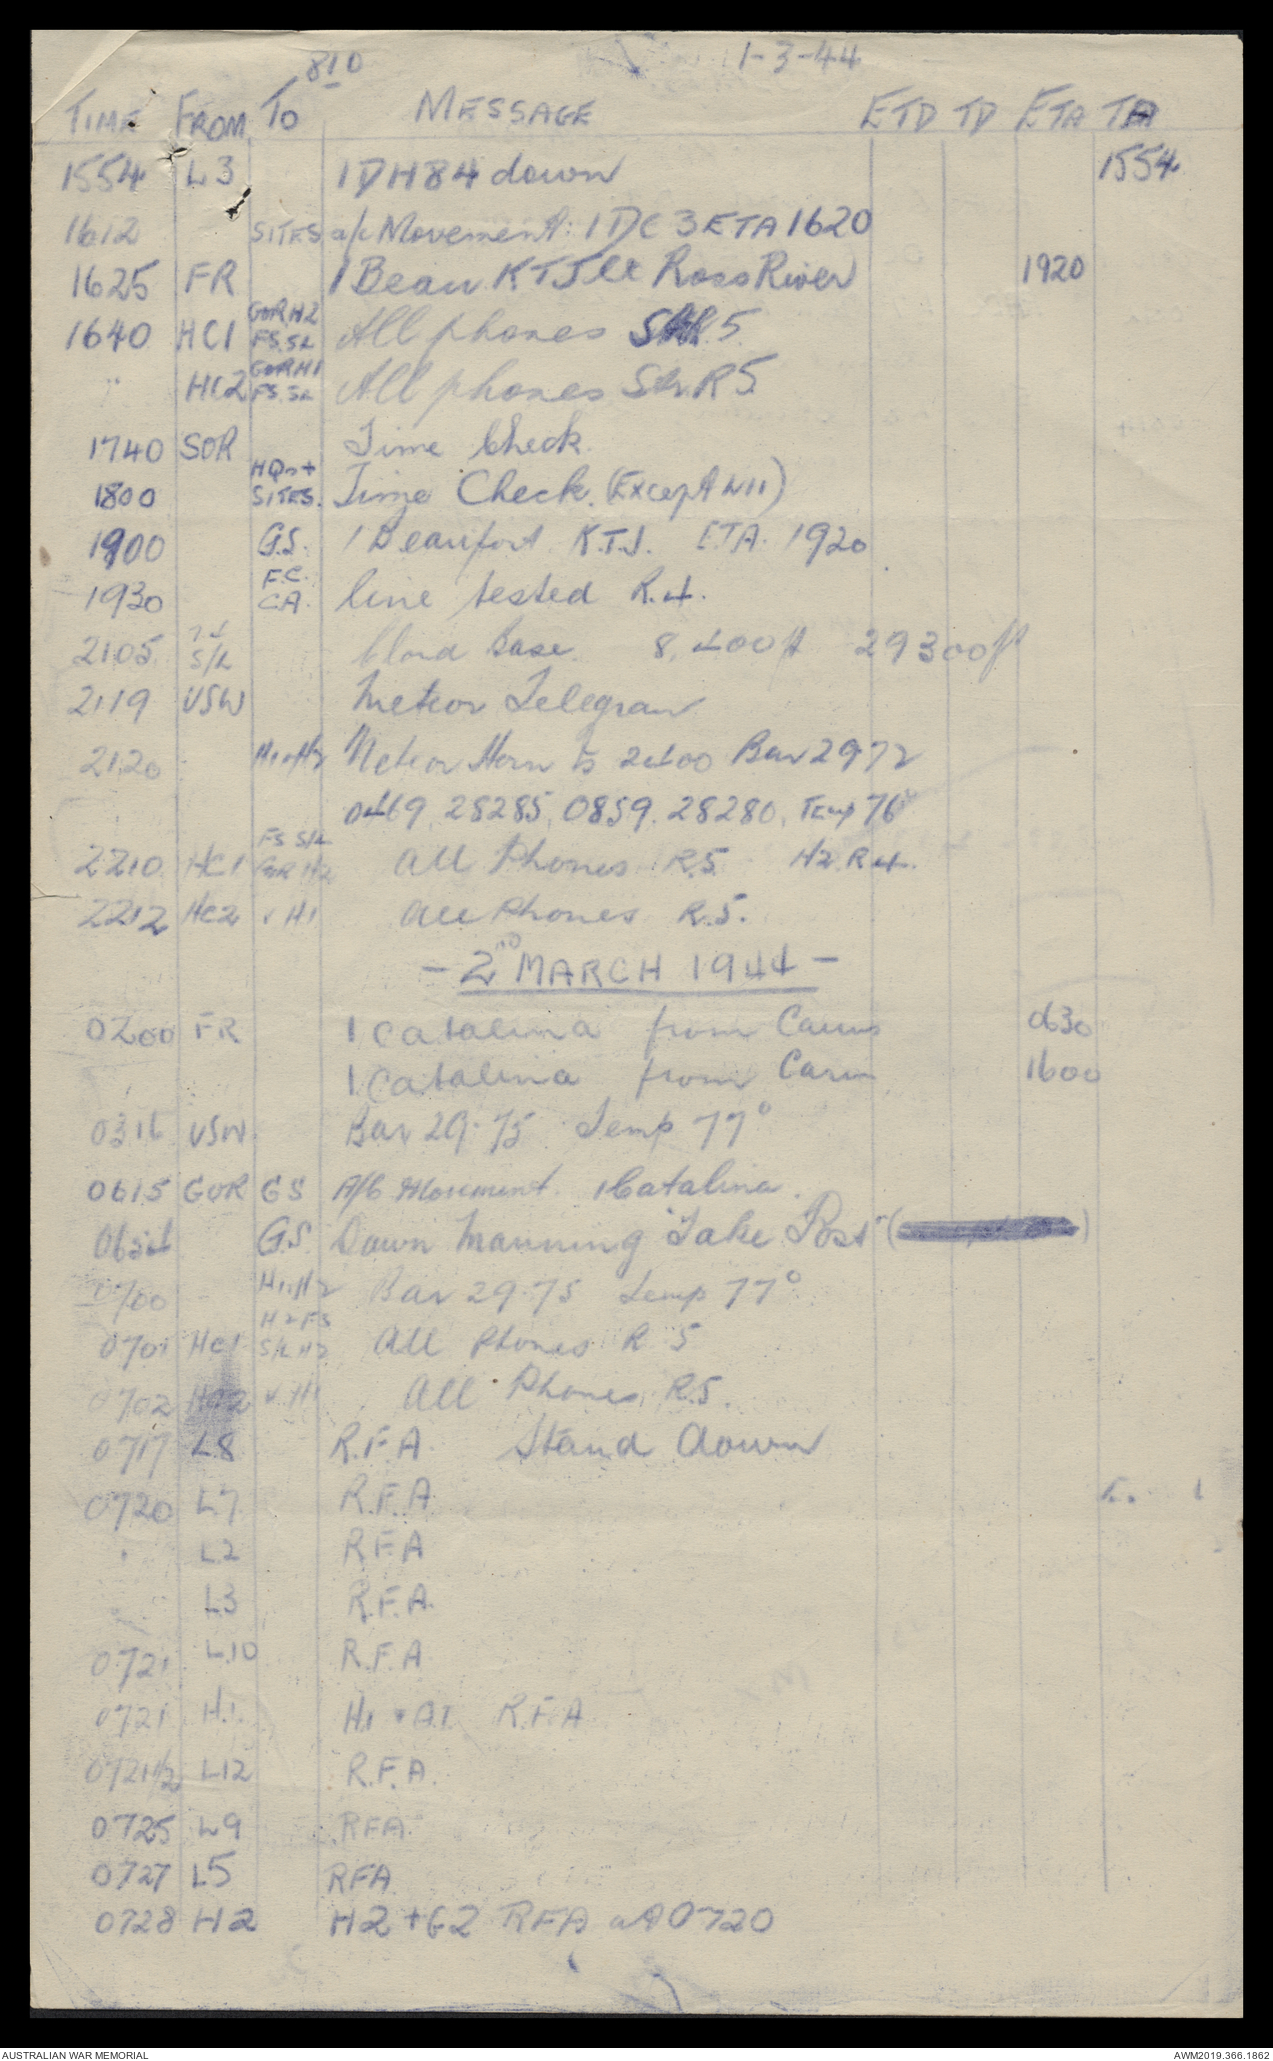 810
1-3-44
TIME FROM TO MESSAGE ETD TD ETA TA
1554 L3 1 DH84 down 1554
1612 SITES a/c Movement: 1 DC3 ETA 1620
1625 FR 1 Beau KTJ Ross River 1920
1640 HC1 GOR.H2 FS.SL All phones 5
" HC2 GOR H1 FS.SL All phones R5
1740 SOR Time Check.
1800 HQrs + SITES. Time Check. (Except W11)
1900 G.S. 1 Beaufort. K.T.J. ETA. 1920
1930 F.C. C.A. line tested R.4.
2105 S/L Cloud Base 8,400ft 29300ft
2119 VSW Meteor Telegram
2120 H1+H2 Meteor to 2400 Bar 29.72
0469, 28285, 0859. 28280, Temp 76°
2210 HC1 FS S/L GOR H2 All Phones R5 H2 R4.
2212 HC2 " H1 All Phones R.5.
- 2ND MARCH 1944 -
0200 FR 1 Catalina from Cairns 0630
1 Catalina from Cairns 1600
0316 VSW Bar 29.75 Temp 77°
0615 GOR GS A/C Movement. 1 Catalina.
G.S. Dawn Manning Take Post ( )
0700 H1+H2 Bar 29.75 Temp 77°
0701 HC1 S/L H2 All Phones R 5
0702 HC2 " H1 All Phones R.5.
0717 L8 R.F.A. Stand Down
0720 L7 R.F.A.
" L2 R.F.A
L3 R.F.A.
0721 L10 R.F.A
0721 H.1. H1 + A1 R.F.A
0721½ L12 R.F.A.
0725 L9 RFA.
0727 L5 RFA
0728 H2 H2 + G2 RFA at 0720
AUSTRALIAN WAR MEMORIAL AWM2019.366.1862